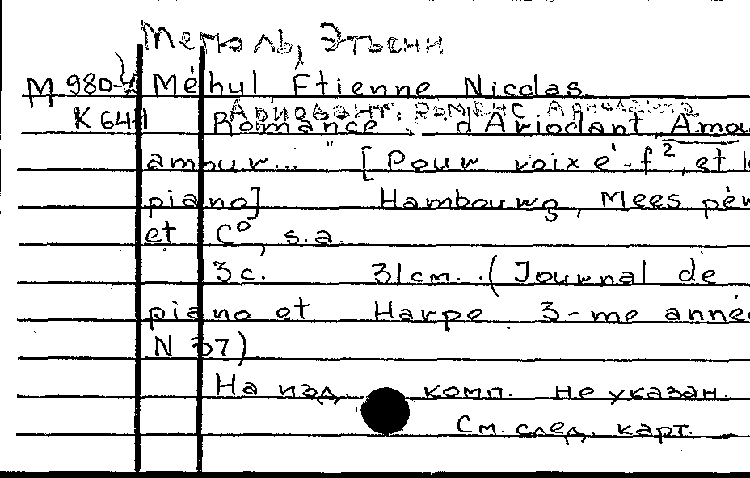 Мегюль, Этьенн
M 980-2 Méhul Etienne Nicolas
Ариодант. Романс Ариоданта
K 644 Romance d'Ariodant, Amou
amour... " [Pour voix e'-f², et l
piano] Hambourg, Mees pèr
et C°, s.a.
3c. 31cm. (Journal de
piano et Harpe 3-me anné
N 37)
На изд. комп. не указан.
См. след. карт.